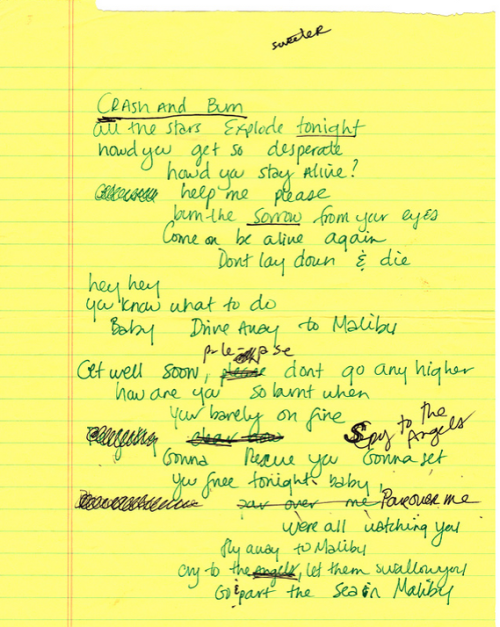 sweeter
CRASH AND Burn
all the stars Explode tonight
howd you get so desperate
howd you stay Alive?
help me please
burn the sorrow from your eyes
Come on be alive again
Dont lay down & die
hey hey
you know what to do
Baby Drive Away to Malibu
ple-ase
Get well soon, please dont go any higher
how are you so burnt when
Your barely on fire
Spy to the Angels
Gonna Rescue you Gonna set
you free tonight baby,
over me Pour over me
We're all watching you
fly away to Malibu
cry to the angels, let them swallow you
Go & part the sea in Malibu